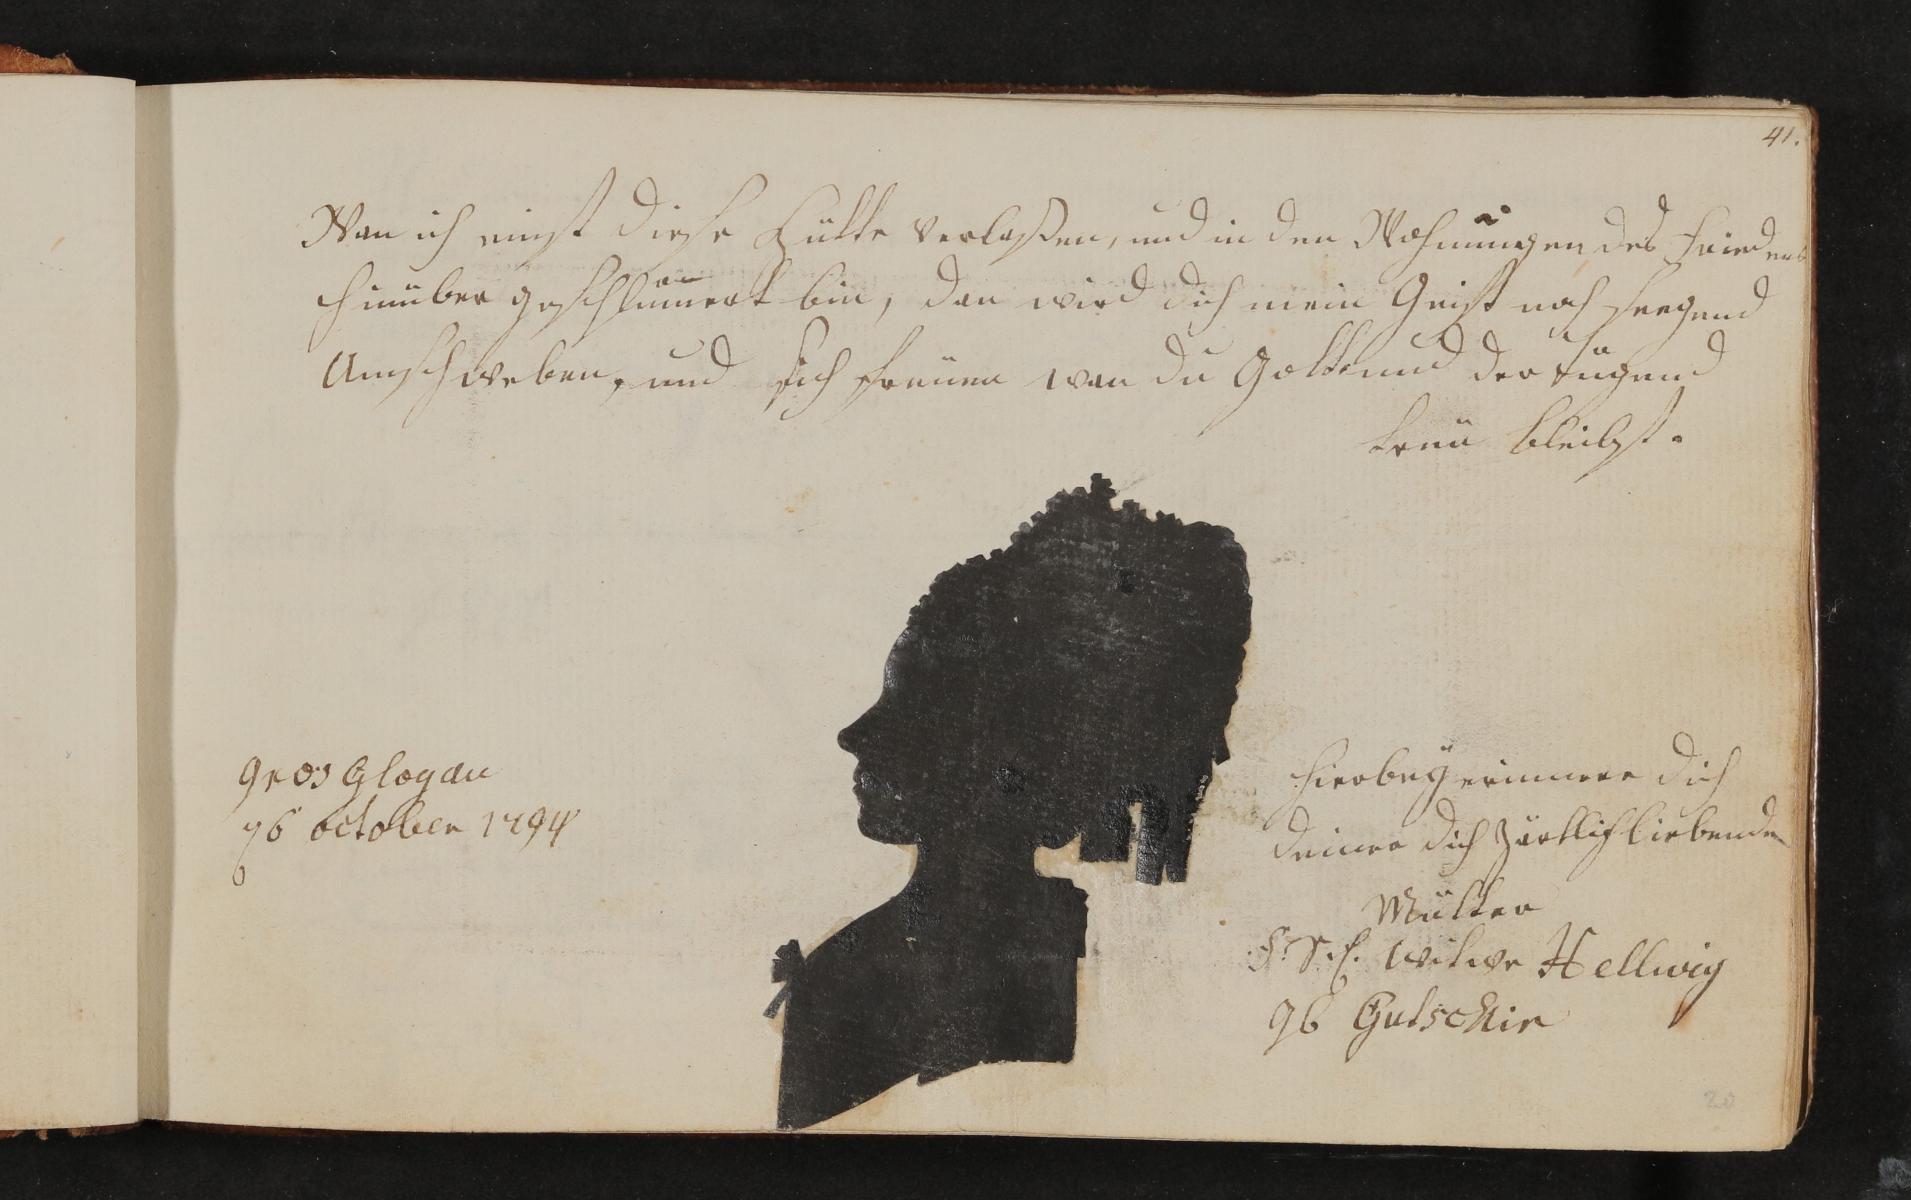 41.
Wan ich einst diese Hütte verlaßen, und in den Wohnungen des Friedens
hinüber geschlumert bin, dan wird dich mein Geist noch seegend
Umschweben, und sich freüen wan du Gott und der tugend
treü bleibst.
gros Glogau
october 1794
hierbey erinnere dich
deiner dich zärtlich liebende
Mutter
Witwe Hellwig
gb Gutschke
20